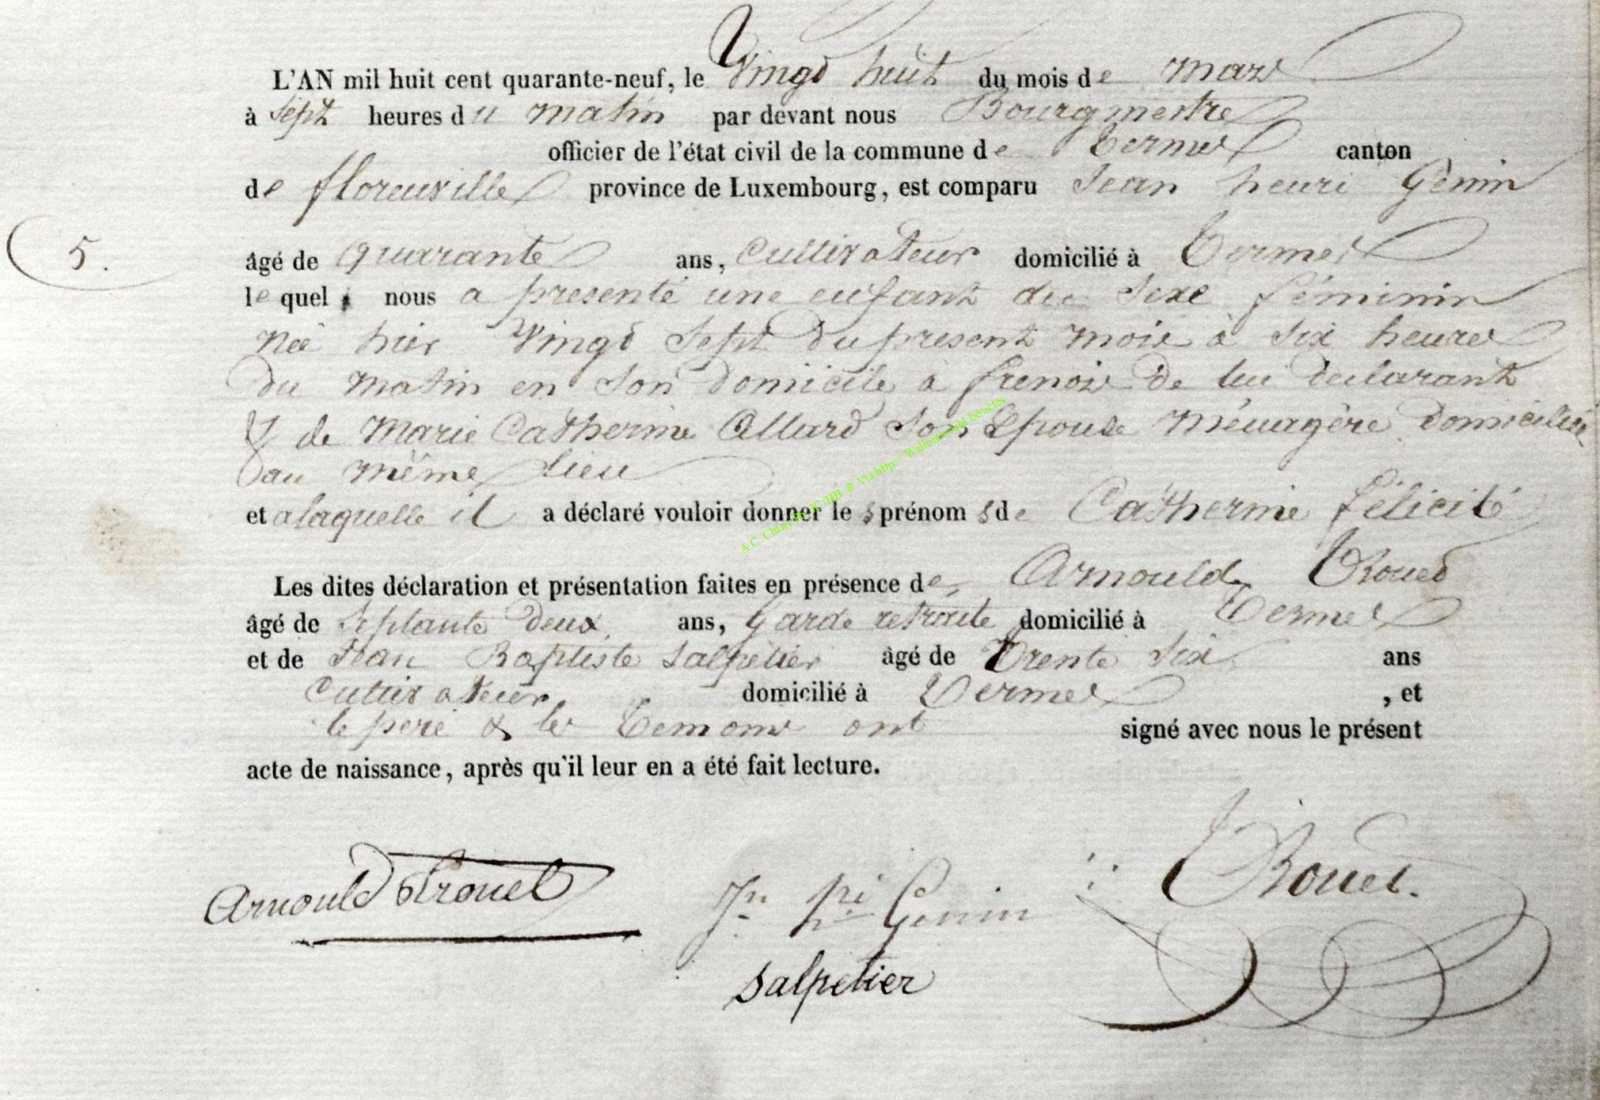 L'AN mil huit cent quarante-neuf, le Vingt huit du mois de mars
à sept heures du matin par devant nous Bourgmestre
officier de l'état civil de la commune de Termes canton
de florenville province de Luxembourg, est comparu Jean henri Génin
5. âgé de quarante ans, Cultivateur domicilié à Termes
le quel nous a presenté une enfant du sexe féminin
née hier Vingt Sept du present mois à six heures
du matin en son domicile a frenois de lui declarant
& de Marie Catherine Allard son Epouse ménagère domiciliée
au même lieu
et a laquelle il a déclaré vouloir donner les prénoms de Catherine félicité
Les dites déclaration et présentation faites en présence de Arnould
âgé de Septante deux ans, Garde retraite domicilié à Termes
et de Jean Baptiste Salpetier âgé de Trente six ans
Cultivateur domicilié à Termes , et
le pere & les temoins ont signé avec nous le présent
acte de naissance, après qu'il leur en a été fait lecture.
Arnould Jn hri Genin
Salpetier